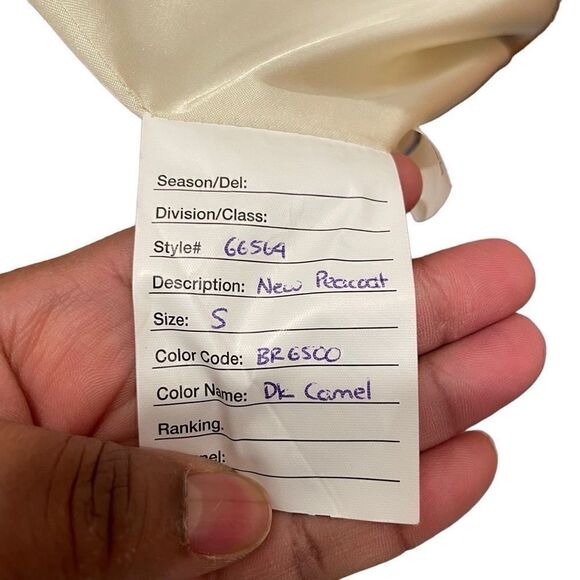 Season/Del:
Division/Class:
Style# 66564
Description: New Peacoat
Size: S
Color Code: BR6500
Color Name: Dk Camel
Ranking.
nel: